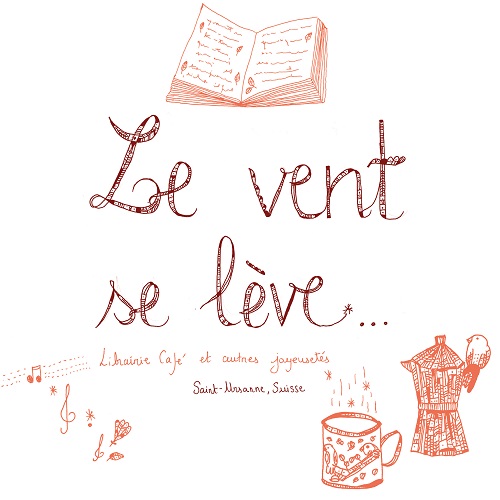 Le vent
se lève...
Librairie Café et autres joyeusetés
Saint-Ursanne, Suisse